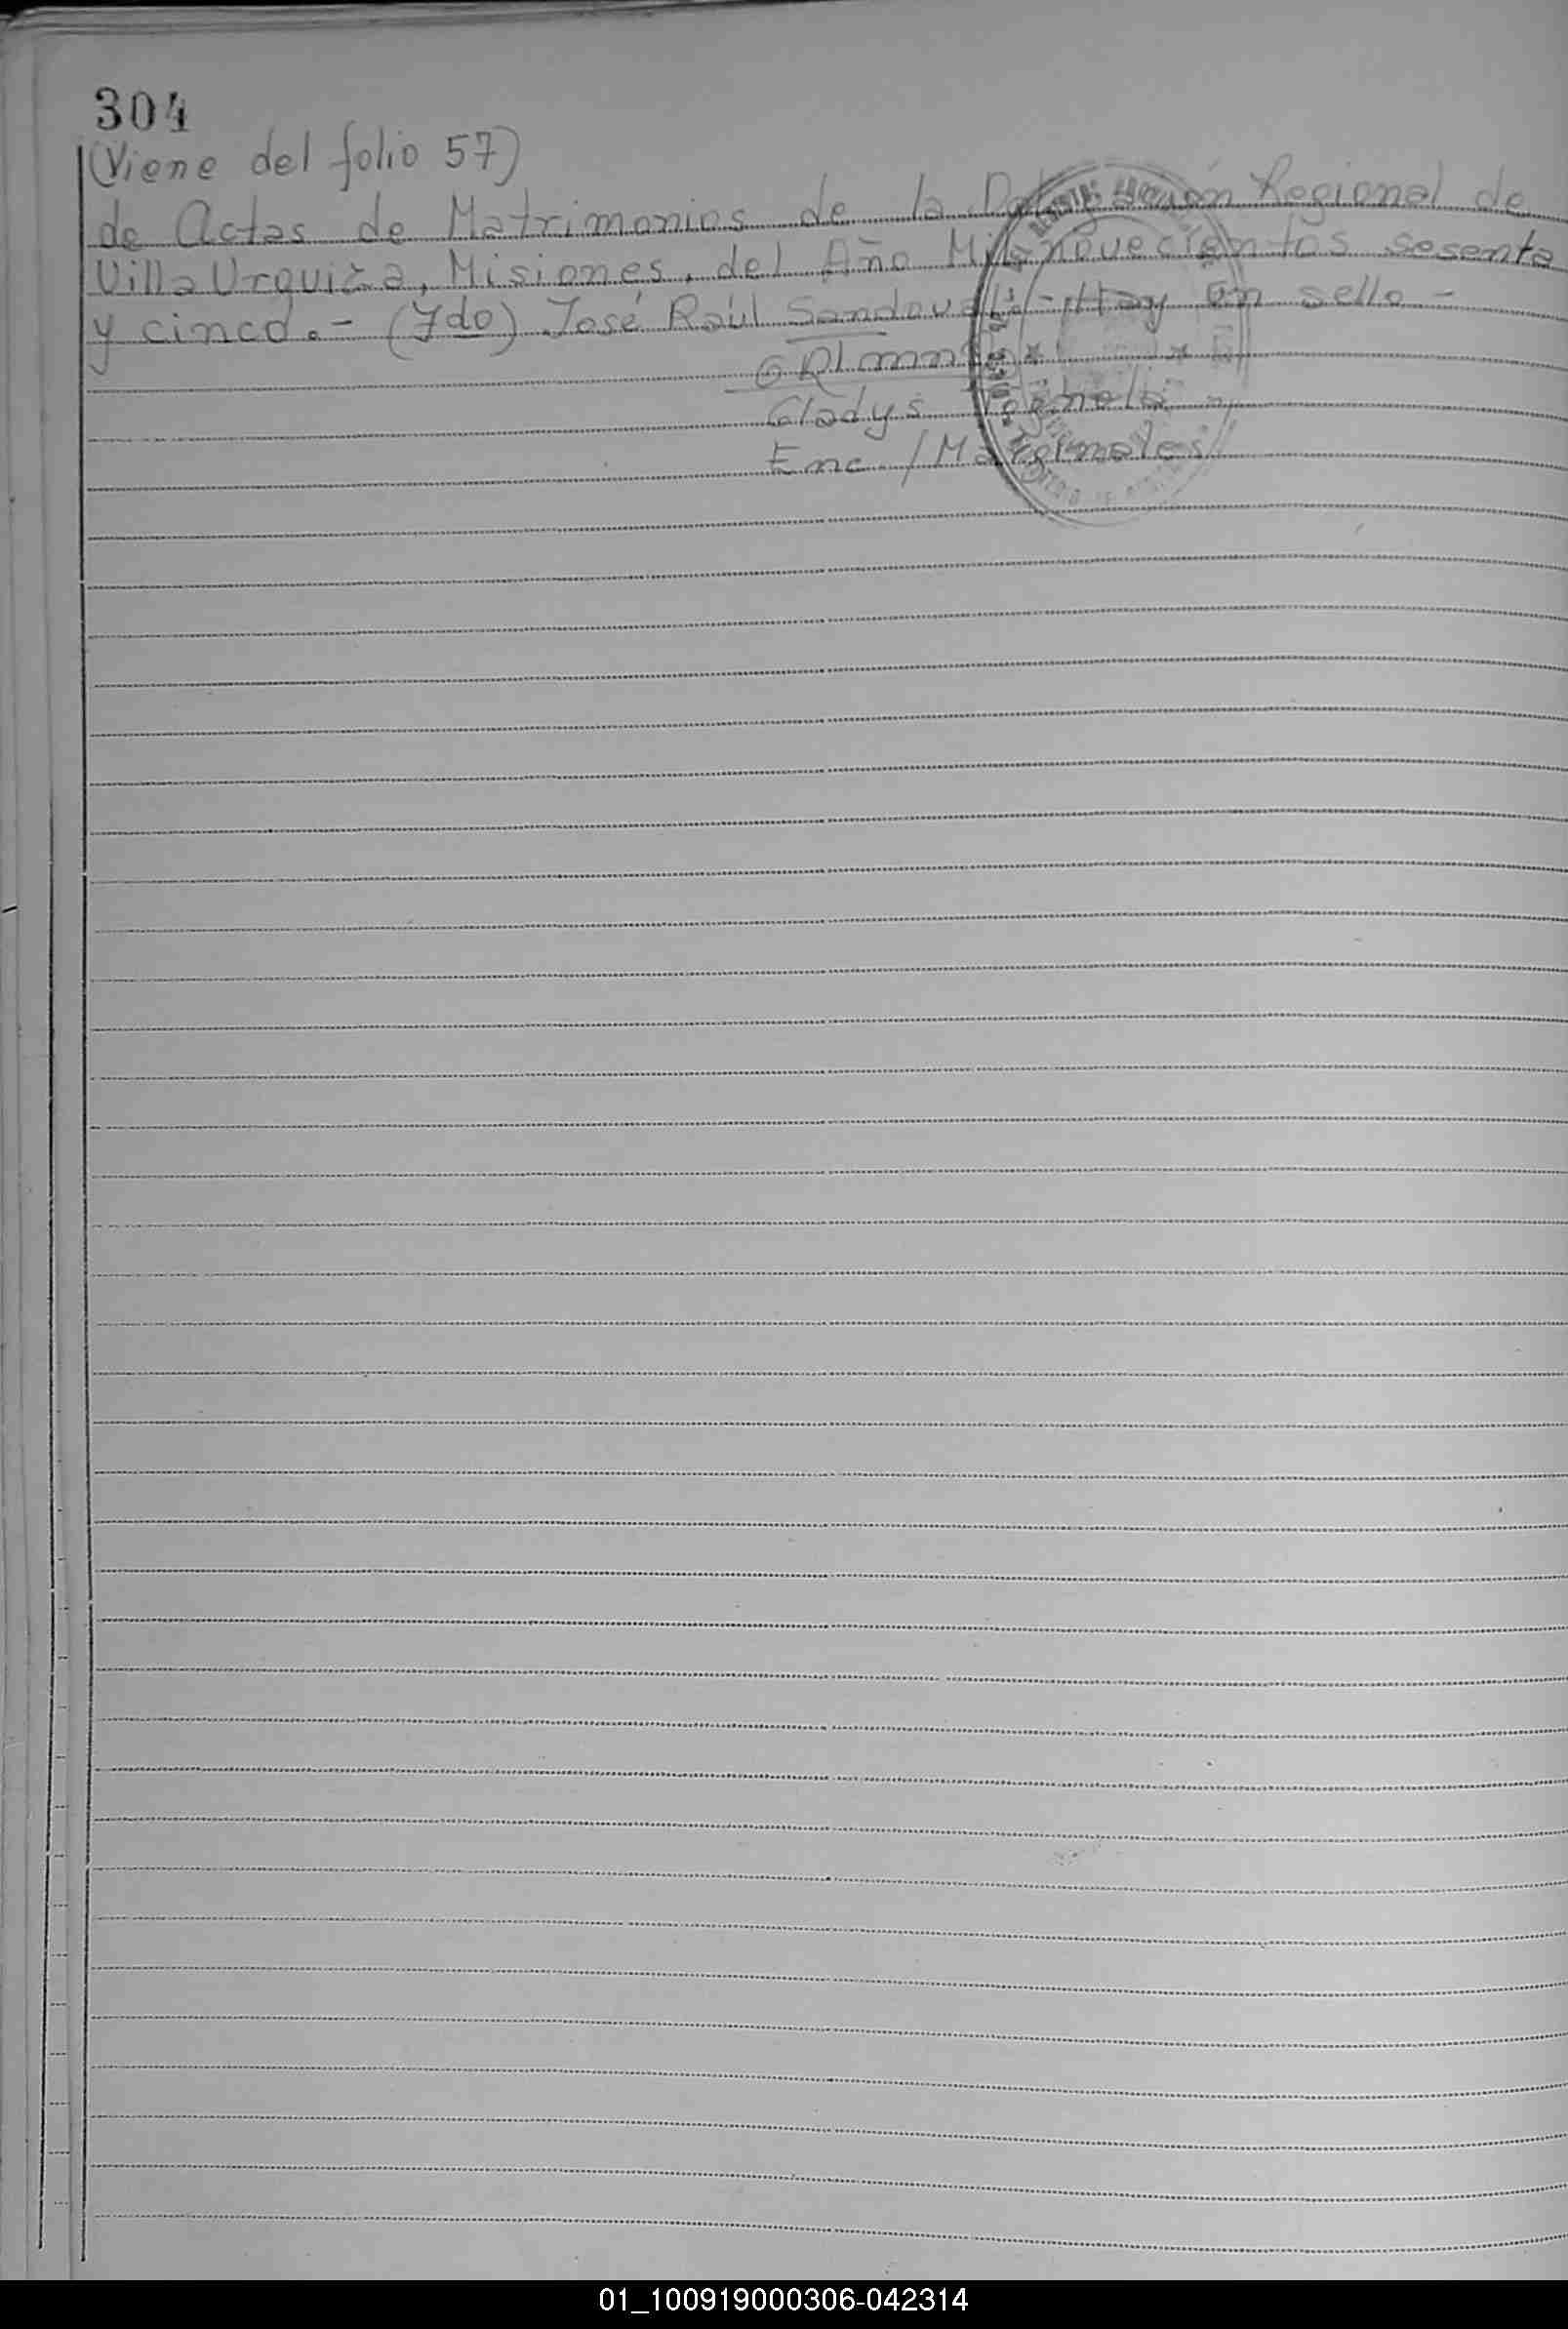 304
(Viene del folio 57)
de Actas de Matrimonios de la Delegación Regional de
Villa Urquiza, Misiones, del Año Mil novecientos sesenta
y cinco.- (Fdo) José Raúl Sandoval.- Hay un sello -
Gladys
Enc./Marginales
01_100919000306-042314